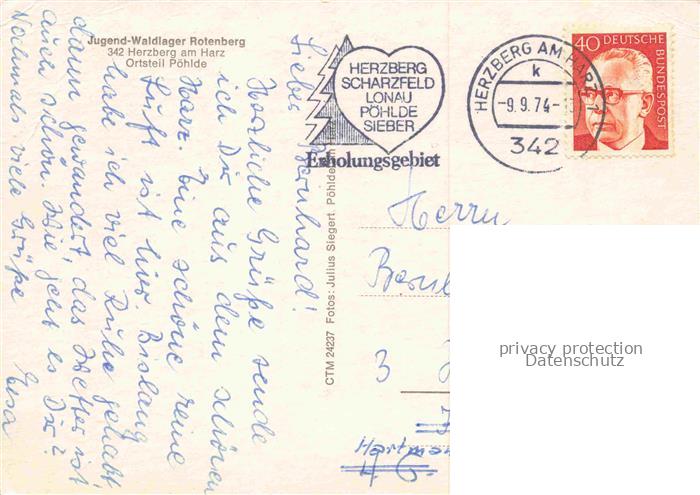 Jugend-Waldlager Rotenberg
342 Herzberg am Harz
Ortsteil Pöhlde
Lieber Bernhard!
Herzliche Grüße sende
ich Dir aus dem schönen
Harz. Eine schöne reine
Luft ist hier. Bislang
habe ich viel Ruhe gehabt,
dann gewandert, das Wetter ist
auch schön. Wie geht es Dir?
Nochmals viele Grüße
CTM 24237 Fotos: Julius Siegert, Pöhlde
HERZBERG
SCHARZFELD
LONAU
PÖHLDE
SIEBER
Erholungsgebiet
HERZBERG AM HARZ 1
k
-9.9.74-
342
40 DEUTSCHE
BUNDESPOST
Herrn
3
privacy protection
Datenschutz